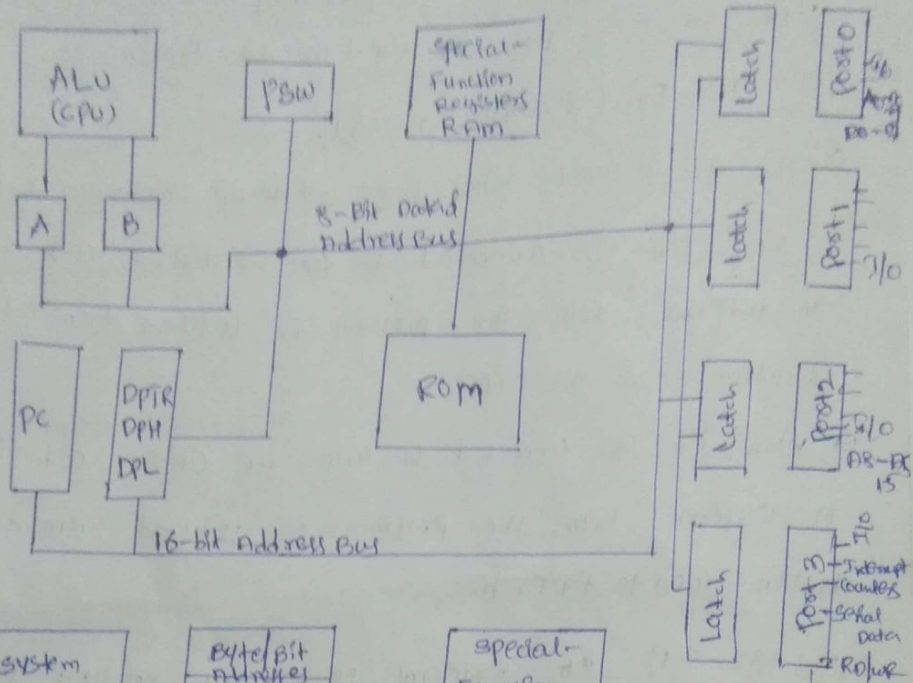 ALU
(CPU)
PSW
Special-
Function
Registers
RAM
A
B
8-Bit
Address Bus
PC
DPTR
DPH
DPL
ROM
16-bit Address Bus
Latch
Port 0
Latch
Port 1
I/O
Latch
Port 2
I/O
A8-A
15
Latch
Port 3
I/O
Interrupt
Counter
Serial
Data
RD/WR
System
Byte/Bit
Addresses
Special-